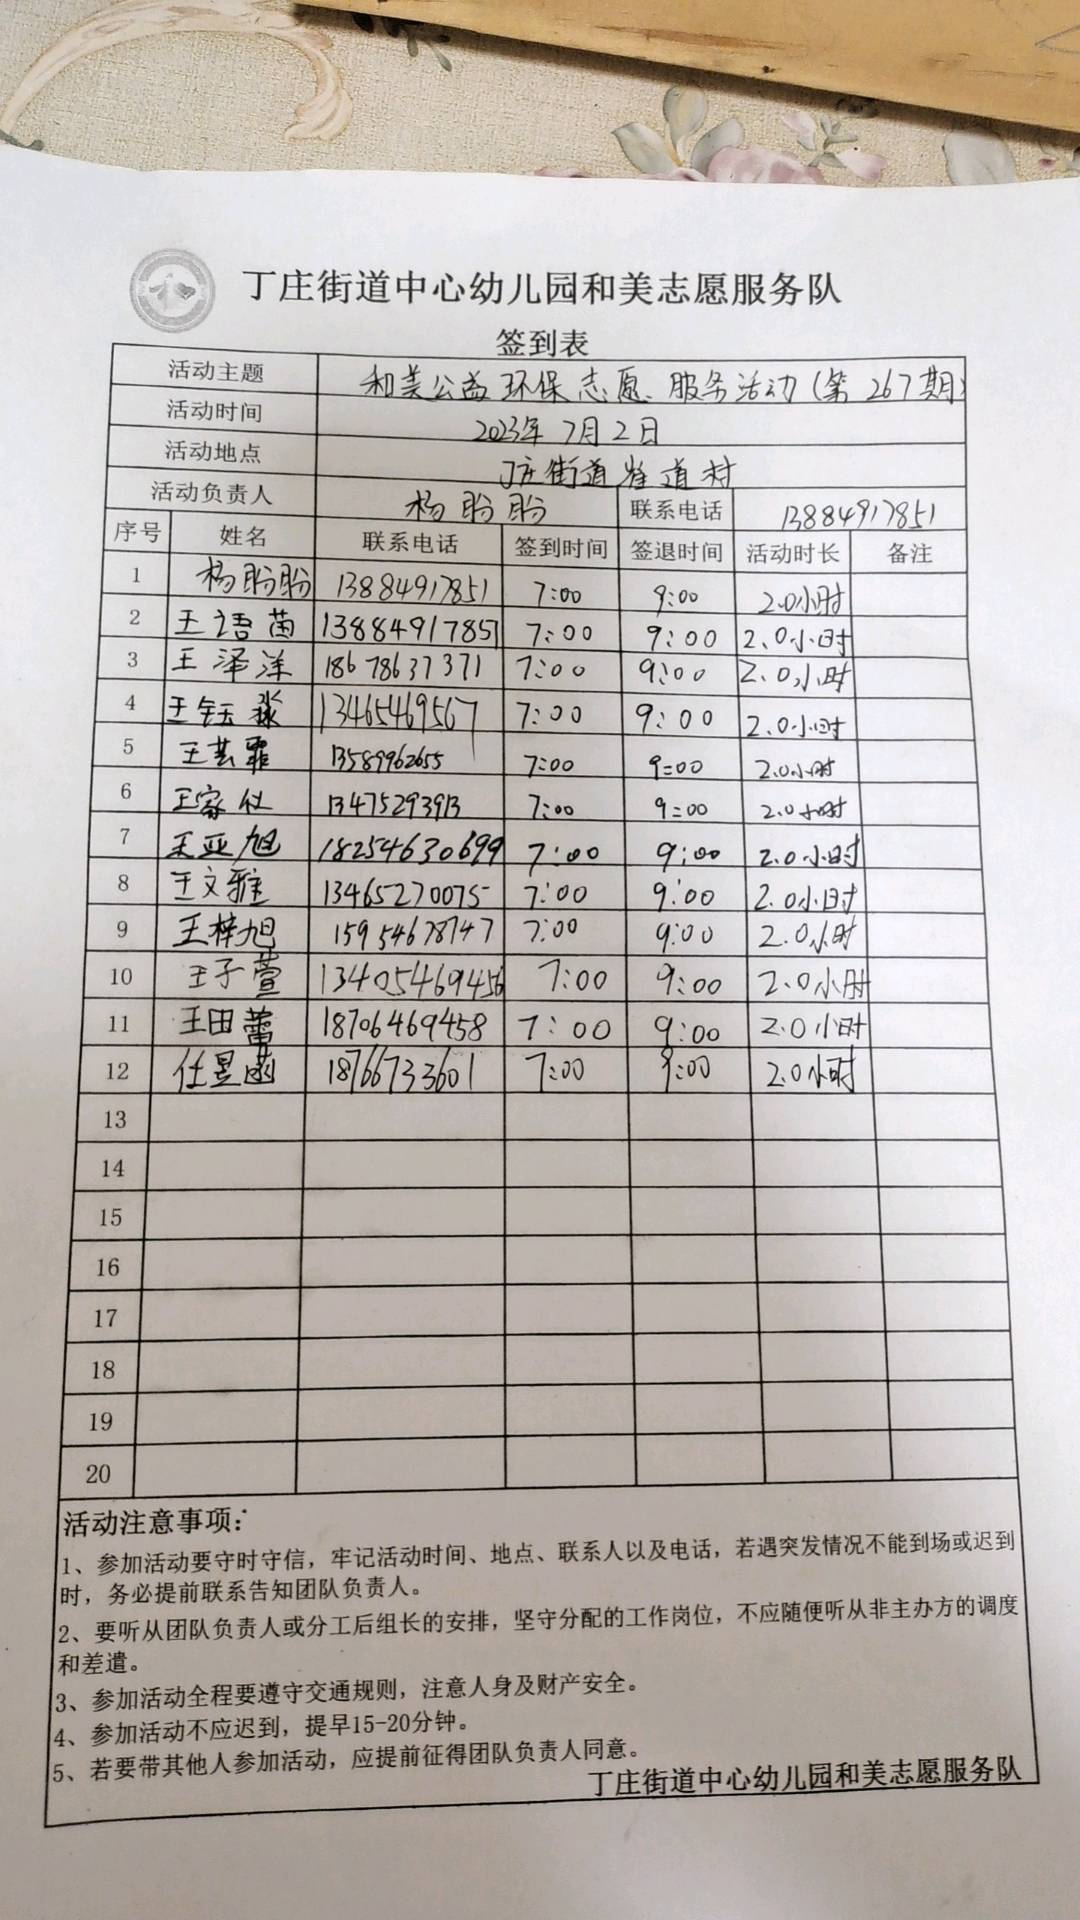 丁庄街道中心幼儿园和美志愿服务队
签到表
活动主题 和美公益环保志愿服务活动(第267期)
活动时间 2023年7月2日
活动地点 丁庄街道 道村
活动负责人 杨盼盼 联系电话 13884917851
序号 姓名 联系电话 签到时间 签退时间 活动时长 备注
1 杨盼盼 13884917851 7:00 9:00 2.0小时
2 王语茵 13884917851 7:00 9:00 2.0小时
3 王泽洋 18678637371 7:00 9:00 2.0小时
4 王钰 13465469567 7:00 9:00 2.0小时
5 王芸霏 13589962655 7:00 9:00 2.0小时
6 王家仪 13475293913 7:00 9:00 2.0小时
7 王亚旭 18254630699 7:00 9:00 2.0小时
8 王文雅 13465270075 7:00 9:00 2.0小时
9 王梓旭 15954678747 7:00 9:00 2.0小时
10 王子萱 13405469456 7:00 9:00 2.0小时
11 王田蕾 18706469458 7:00 9:00 2.0小时
12 任昱菡 18766733601 7:00 9:00 2.0小时
13
14
15
16
17
18
19
20
活动注意事项:
1、参加活动要守时守信，牢记活动时间、地点、联系人以及电话，若遇突发情况不能到场或迟到
时，务必提前联系告知团队负责人。
2、要听从团队负责人或分工后组长的安排，坚守分配的工作岗位，不应随便听从非主办方的调度
和差遣。
3、参加活动全程要遵守交通规则，注意人身及财产安全。
4、参加活动不应迟到，提早15-20分钟。
5、若要带其他人参加活动，应提前征得团队负责人同意。
丁庄街道中心幼儿园和美志愿服务队